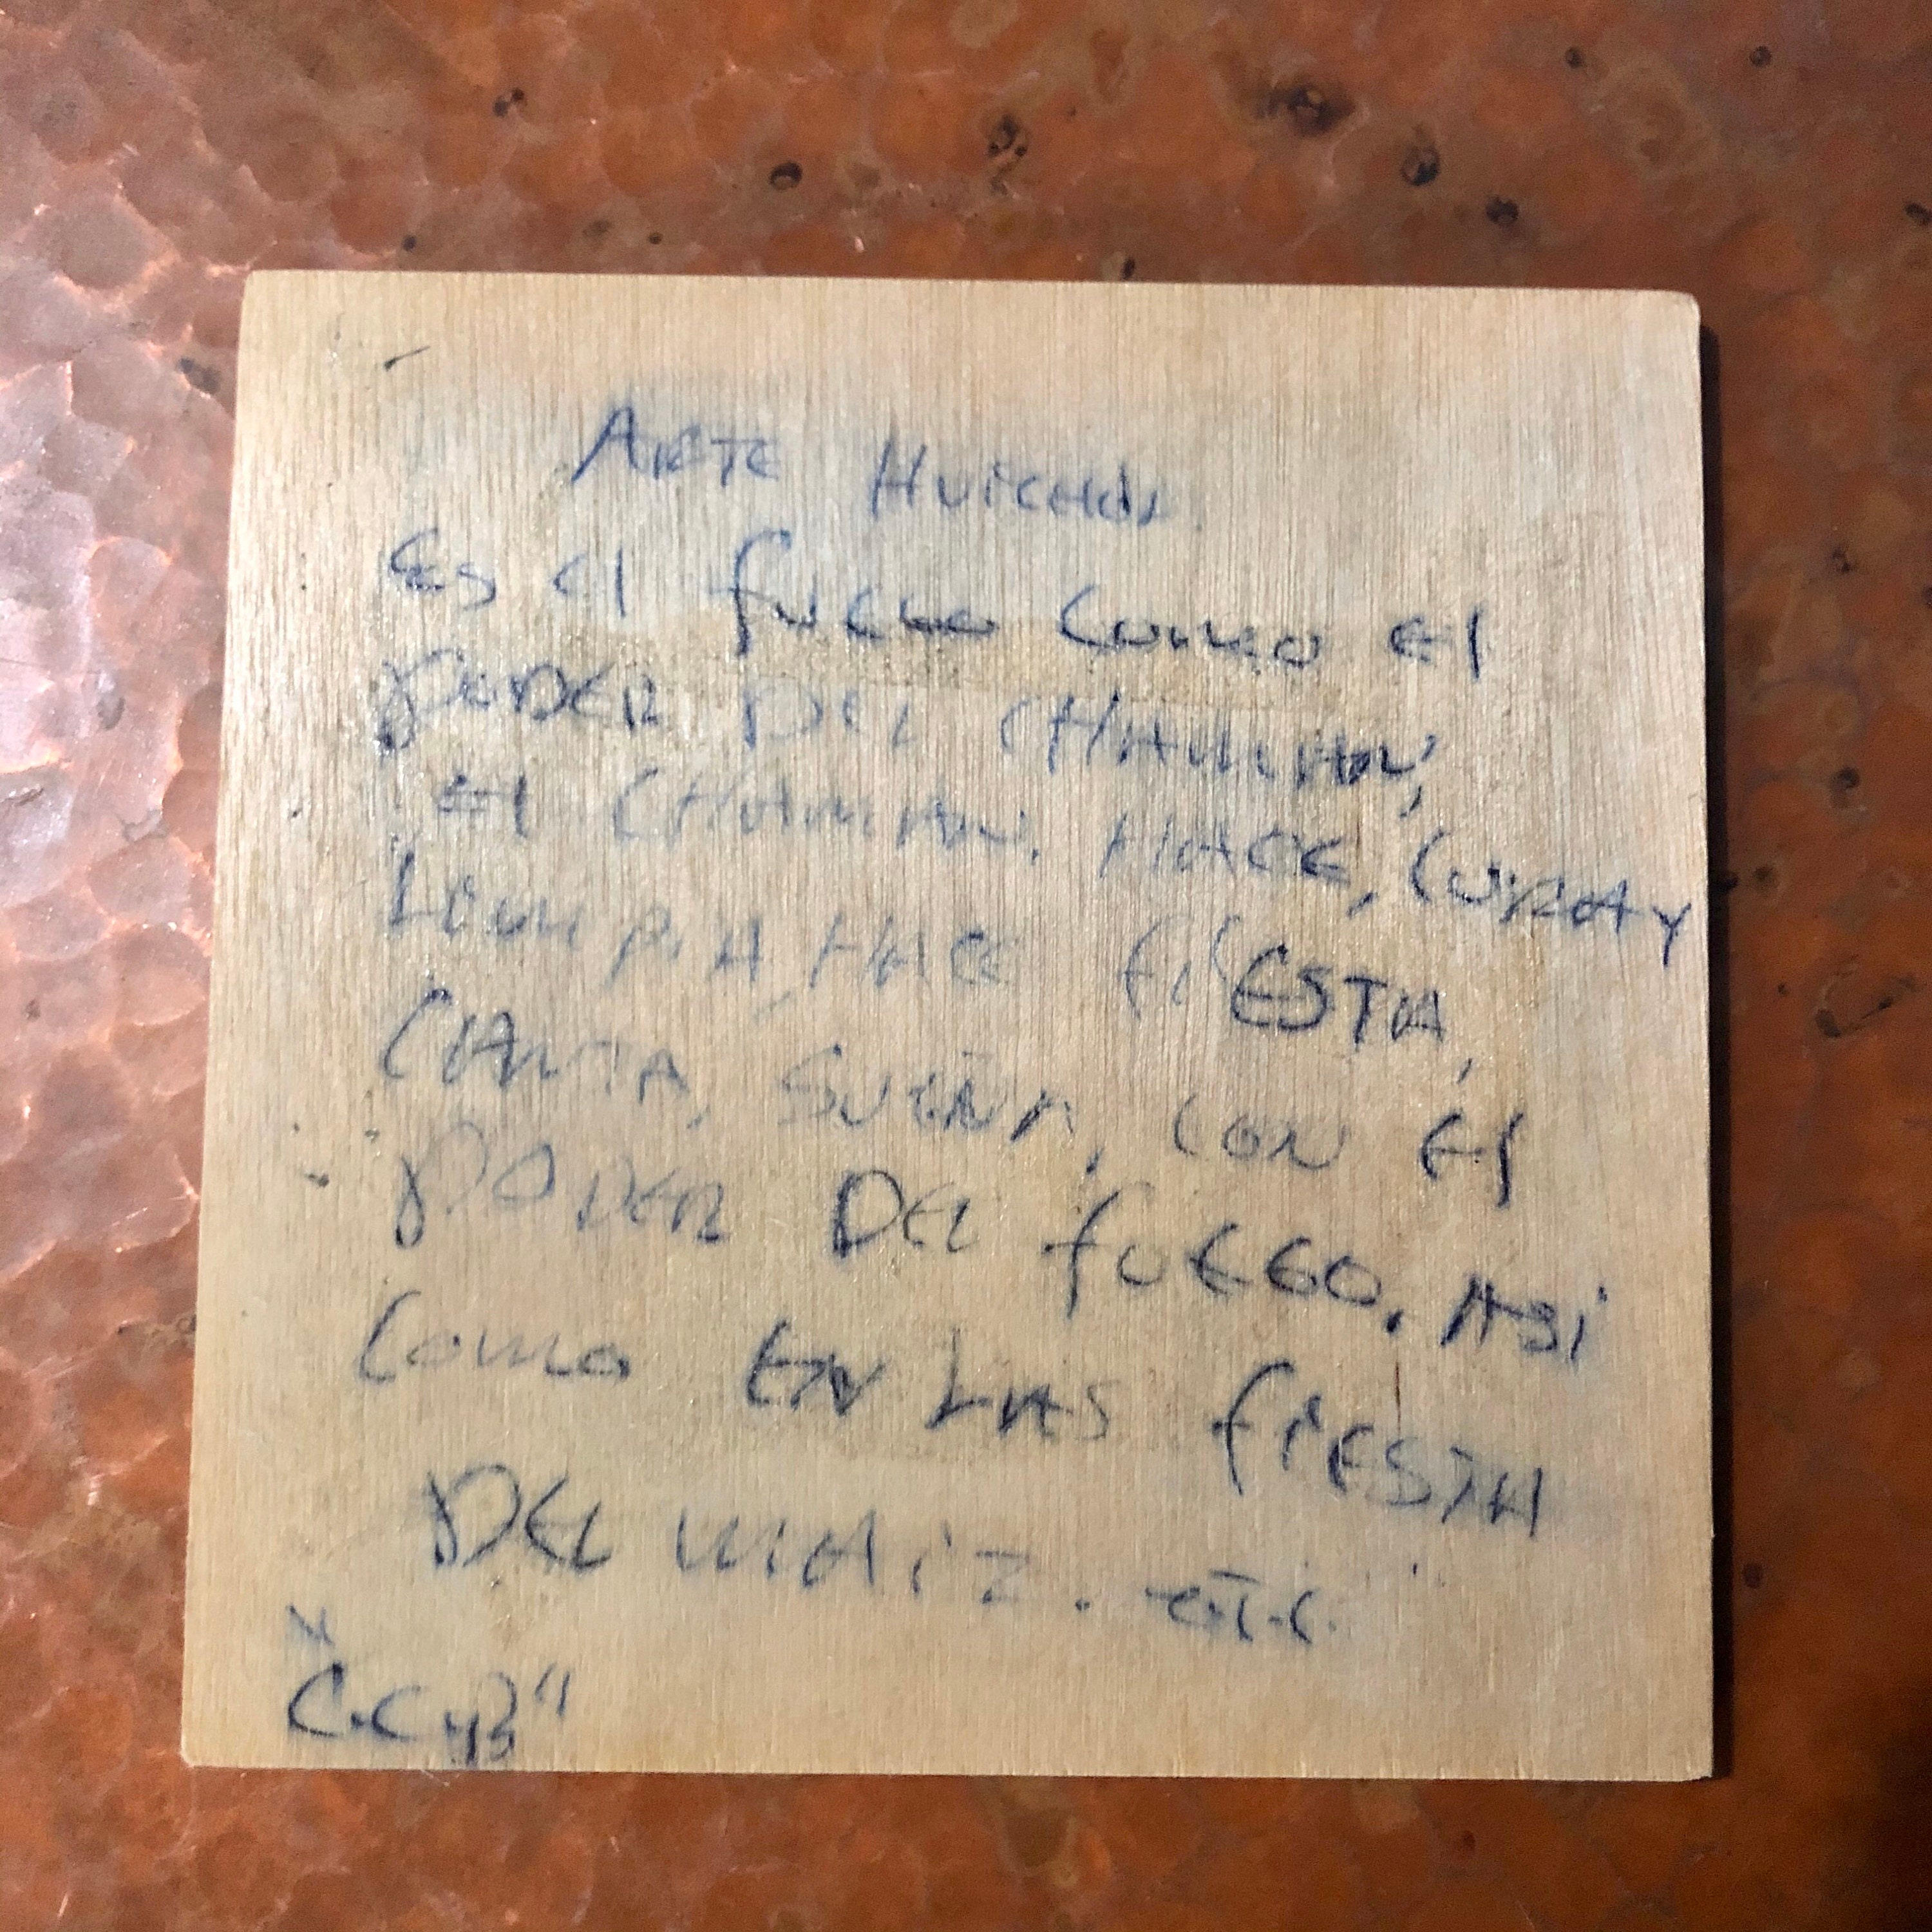 ARTE HUICHOL
Es el fuego como el
PODER DEL CHAMAN,
el CHAMAN. HACE, CURA Y
LIMPIA, HACE fiESTA,
CANTA, SUEÑA, CON El
PODER DEL fUEGO. ASi
Como EN LAS fiESTA
DEL MAiz. e.t.c.